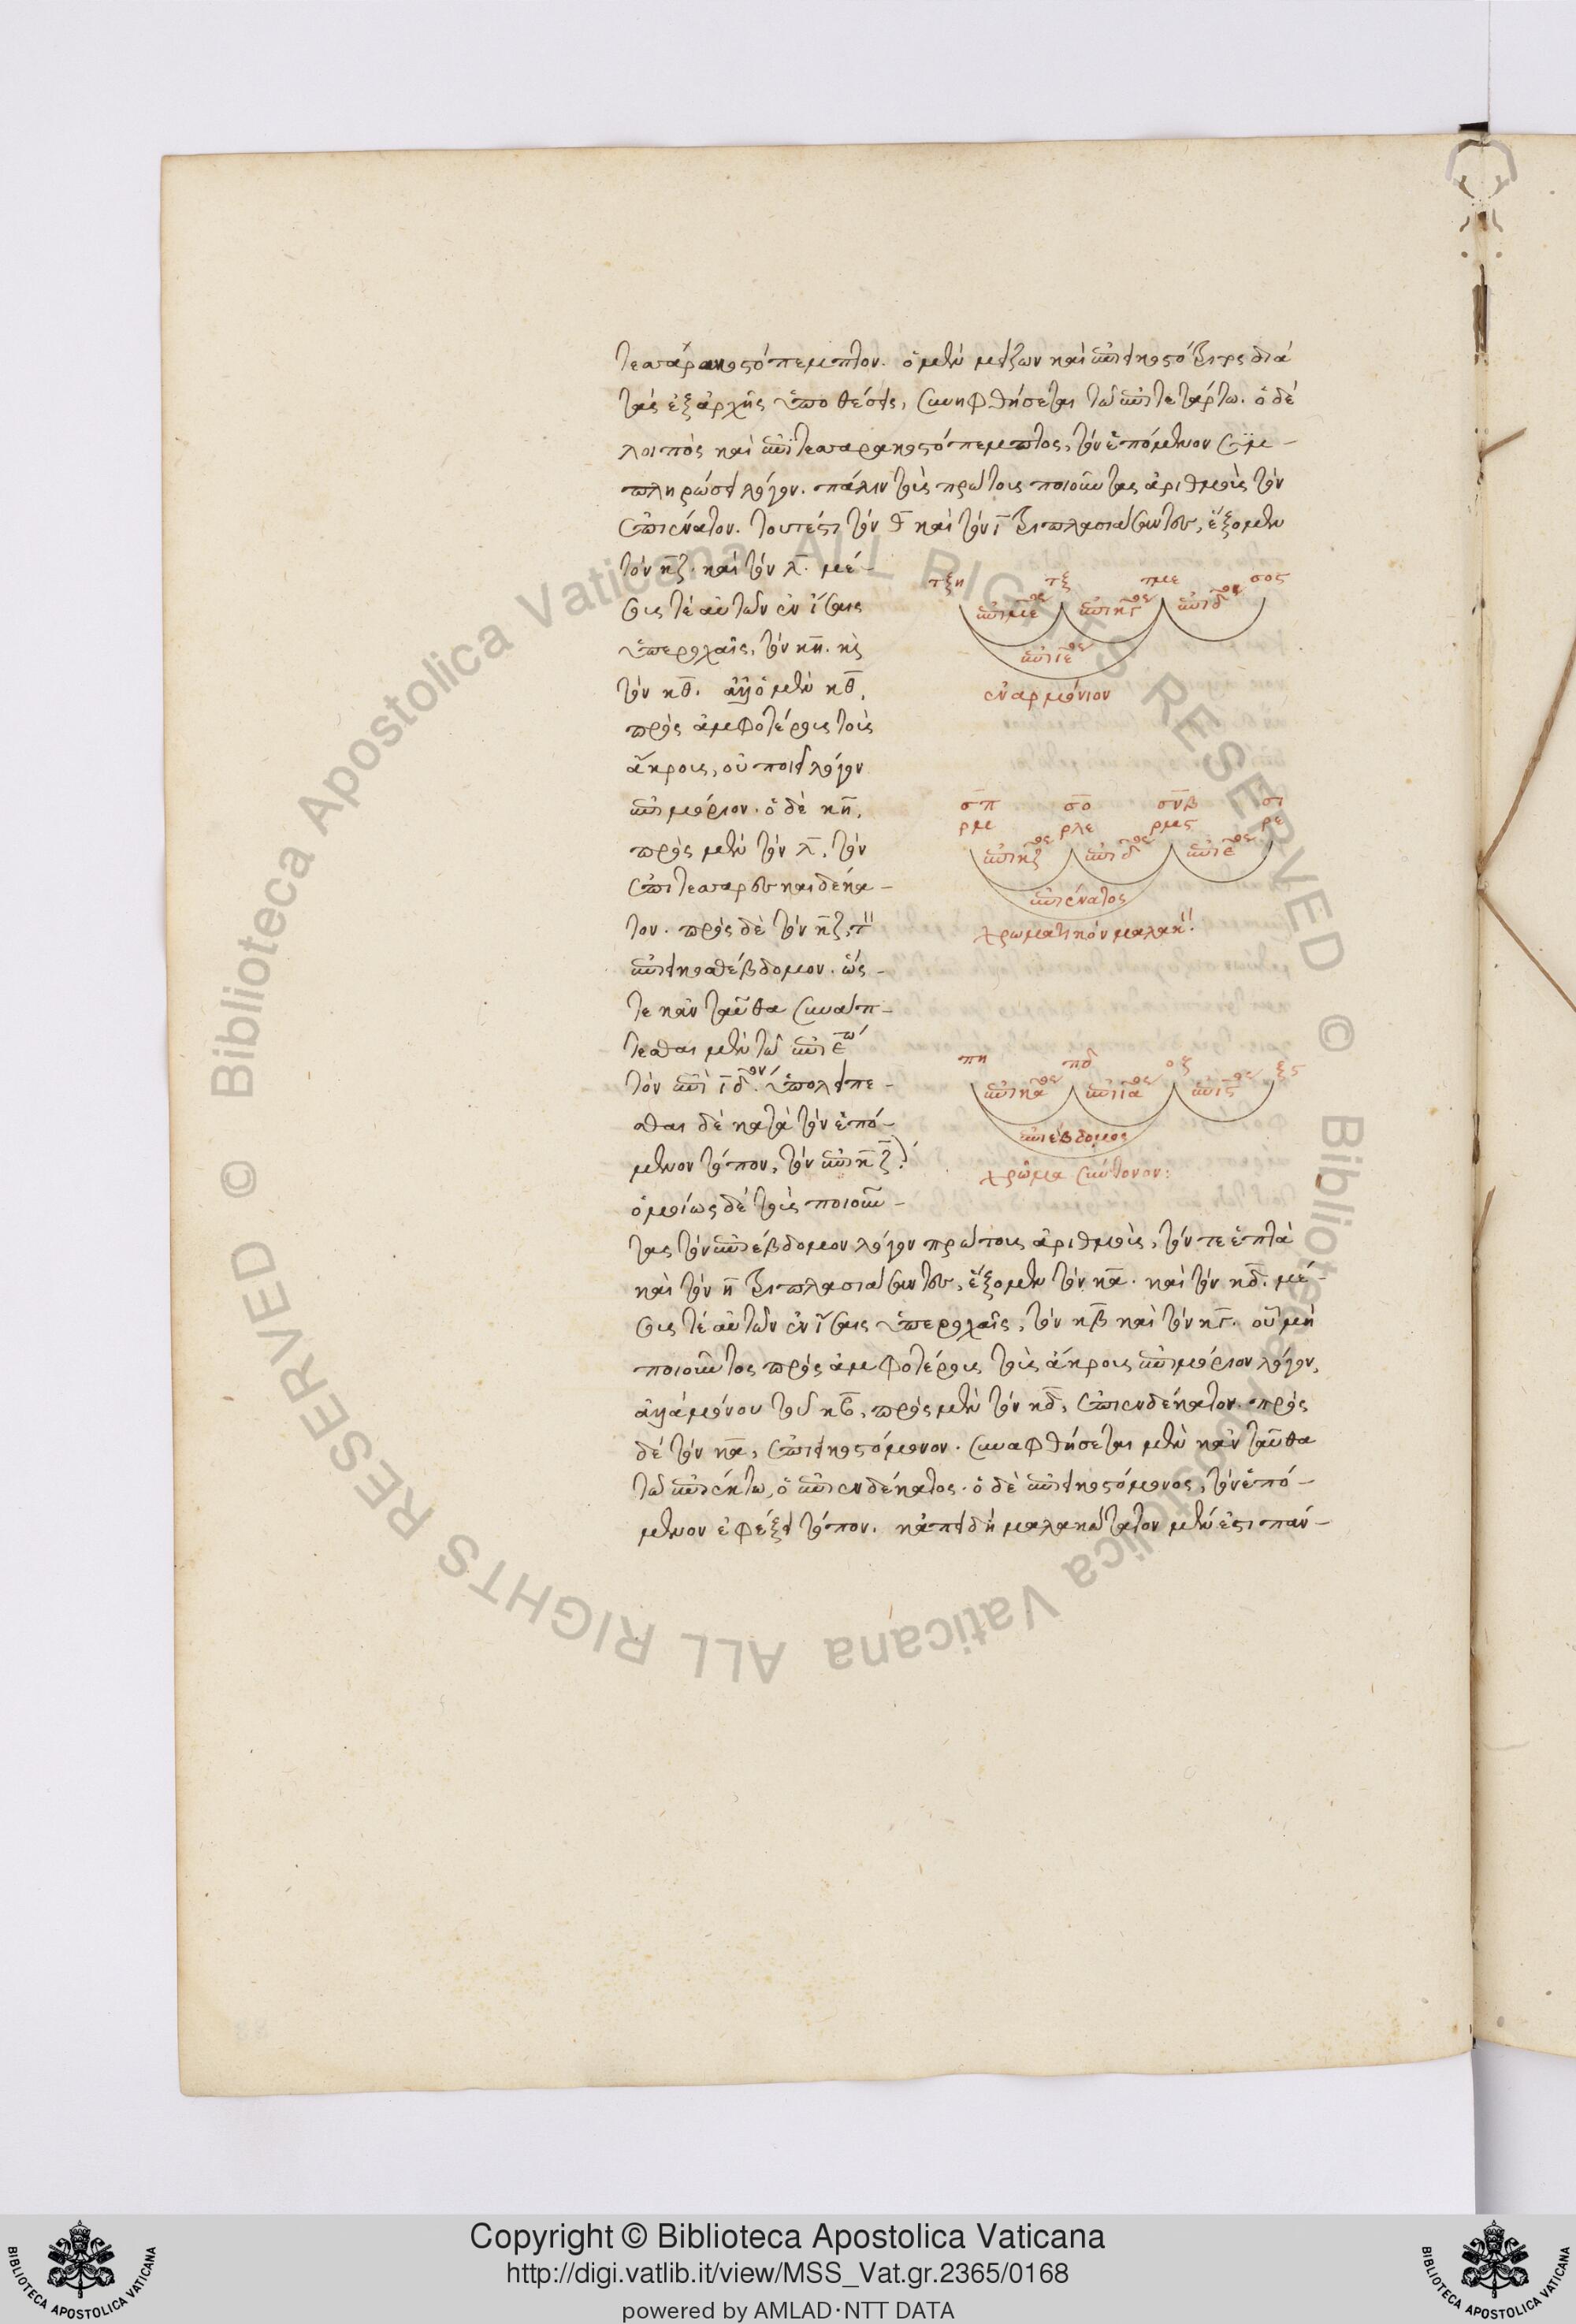 τεσσαρακοστόπεμπτον. ὁ μὲν μείζων καὶ ἐπιεικοστότριτος διὰ
τὰς ἐξ ἀρχῆς ὑποθέσεις, συναφθήσεται τῷ ἐπιτετάρτῳ. ὁ δὲ
λοιπὸς καὶ ἐπιτεσσαρακοστόπεμπτος, τὸν ἑπόμενον συμ-
πληρώσει λόγον. πάλιν τοὺς πρώτους ποιοῦντας ἀριθμοὺς τὸν
ἐπιένατον. τουτέστι τὸν θ καὶ τὸν ι τριπλασιάσαντες, ἕξομεν
τὸν κζ. καὶ τὸν λ. μέ-
σους τε αὐτῶν ἐν ἴσαις
ὑπεροχαῖς, τὸν κη. καὶ
τὸν κθ. ἀλλ' ὁ μὲν κθ,
πρὸς ἀμφοτέρους τοὺς
ἄκρους, οὐ ποιεῖ λόγον
ἐπιμόριον. ὁ δὲ κη,
πρὸς μὲν τὸν λ, τὸν
ἐπιτεσσαρεσκαιδέκα-
τον. πρὸς δὲ τὸν κζ, τὸν
ἐπιεικοσθέβδομον. ὥσ-
τε κἀνταῦθα συνάπ-
τεσθαι μὲν τῷ ἐπὶ ε ῳ
τὸν ἐπὶ ιδ ον. ὑπολείπε-
σθαι δὲ κατὰ τὸν ἑπό-
μενον τόπον, τὸν ἐπὶ κζ ον.
ὁμοίως δὲ τοὺς ποιοῦν-
τας τὸν ἐπιέβδομον λόγον πρώτους ἀριθμοὺς, τόν τε ἑπτὰ
καὶ τὸν η τριπλασιάσαντες, ἕξομεν τὸν κα. καὶ τὸν κδ. μέ-
σους τε αὐτῶν ἐν ἴσαις ὑπεροχαῖς, τὸν κβ καὶ τὸν κγ. οὗ μὴ
ποιοῦντος πρὸς ἀμφοτέρους τοὺς ἄκρους ἐπιμόριον λόγον,
ἀλλὰ μόνου τοῦ κβ, πρὸς μὲν τὸν κδ, ἐπιενδέκατον. πρὸς
δὲ τὸν κα, ἐπιεικοστόμονον. συναφθήσεται μὲν κἀνταῦθα
τῷ ἐπιέκτῳ, ὁ ἐπιενδέκατος. ὁ δὲ ἐπιεικοστόμονος, τὸν ἑπό-
μενον ἐφέξει τόπον. κἀπειδὴ μαλακώτατον μέν ἐστι πάν-
τξη τξ τμε σος
ἐπὶ με ος ἐπὶ κγ ος ἐπὶ δ ον
ἐπὶ ιε ος
ἐναρμόνιον
σπ σο σνβ σι
ρμ ρλε ρκς ρε
ἐπὶ κζ ος ἐπὶ ιδ ος ἐπὶ ε ος
ἐπιένατος
χρωματικὸν μαλακόν:
πη πδ οζ ξς
ἐπὶ κα ος ἐπὶ ια ος ἐπὶ ς ος
ἐπιέβδομος
χρῶμα σύντονον:
Copyright © Biblioteca Apostolica Vaticana
http://digi.vatlib.it/view/MSS_Vat.gr.2365/0168
powered by AMLAD·NTT DATA
BIBLIOTECA APOSTOLICA VATICANA
BIBLIOTECA APOSTOLICA VATICANA
© Biblioteca Apostolica Vaticana ALL RIGHTS RESERVED © Biblioteca Apostolica Vaticana ALL RIGHTS RESERVED